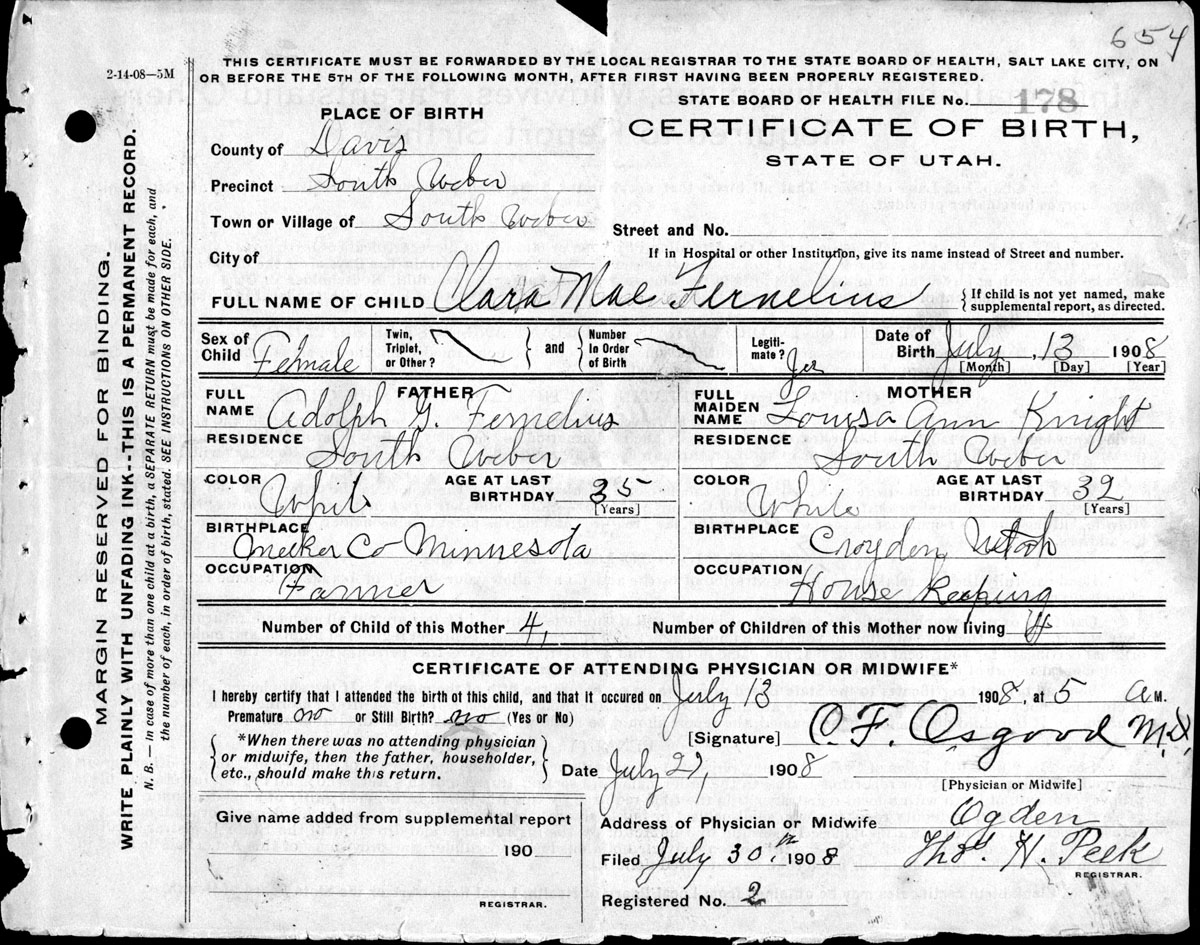 654
2-14-08—5M
THIS CERTIFICATE MUST BE FORWARDED BY THE LOCAL REGISTRAR TO THE STATE BOARD OF HEALTH, SALT LAKE CITY, ON
OR BEFORE THE 5TH OF THE FOLLOWING MONTH, AFTER FIRST HAVING BEEN PROPERLY REGISTERED.
STATE BOARD OF HEALTH FILE No. 178
PLACE OF BIRTH
CERTIFICATE OF BIRTH,
STATE OF UTAH.
County of Davis
Precinct South Weber
Town or Village of South Weber
Street and No.
City of
If in Hospital or other Institution, give its name instead of Street and number.
FULL NAME OF CHILD Clara Mae Fernelius
{If child is not yet named, make
supplemental report, as directed.
Sex of Child Female
Twin, Triplet, or Other?
and
Number In Order of Birth
Legiti- mate? Yes
Date of Birth July, 13 1908
[Month] [Day] [Year]
FATHER
FULL NAME Adolph G. Fernelius
MOTHER
FULL MAIDEN NAME Louisa Ann Knight
RESIDENCE South Weber
RESIDENCE South Weber
COLOR White
AGE AT LAST BIRTHDAY 35 [Years]
COLOR White
AGE AT LAST BIRTHDAY 32 [Years]
BIRTHPLACE Meeker Co Minnesota
BIRTHPLACE Croydon, Utah
OCCUPATION Farmer
OCCUPATION House Keeping
Number of Child of this Mother 4,
Number of Children of this Mother now living 4
CERTIFICATE OF ATTENDING PHYSICIAN OR MIDWIFE*
I hereby certify that I attended the birth of this child, and that it occured on July 13 1908, at 5 a M.
Premature no or Still Birth? no (Yes or No)
{*When there was no attending physician
or midwife, then the father, householder,
etc., should make this return.}
[Signature] O. F. Osgood M.D.
Date July 29, 1908
[Physician or Midwife]
Give name added from supplemental report
190
REGISTRAR.
Address of Physician or Midwife Ogden
Filed July 30th 1908
Thos. H. Peek
REGISTRAR.
Registered No. 2
MARGIN RESERVED FOR BINDING.
WRITE PLAINLY WITH UNFADING INK--THIS IS A PERMANENT RECORD.
N. B.—In case of more than one child at a birth, a SEPARATE RETURN must be made for each, and
the number of each, in order of birth, stated. SEE INSTRUCTIONS ON OTHER SIDE.